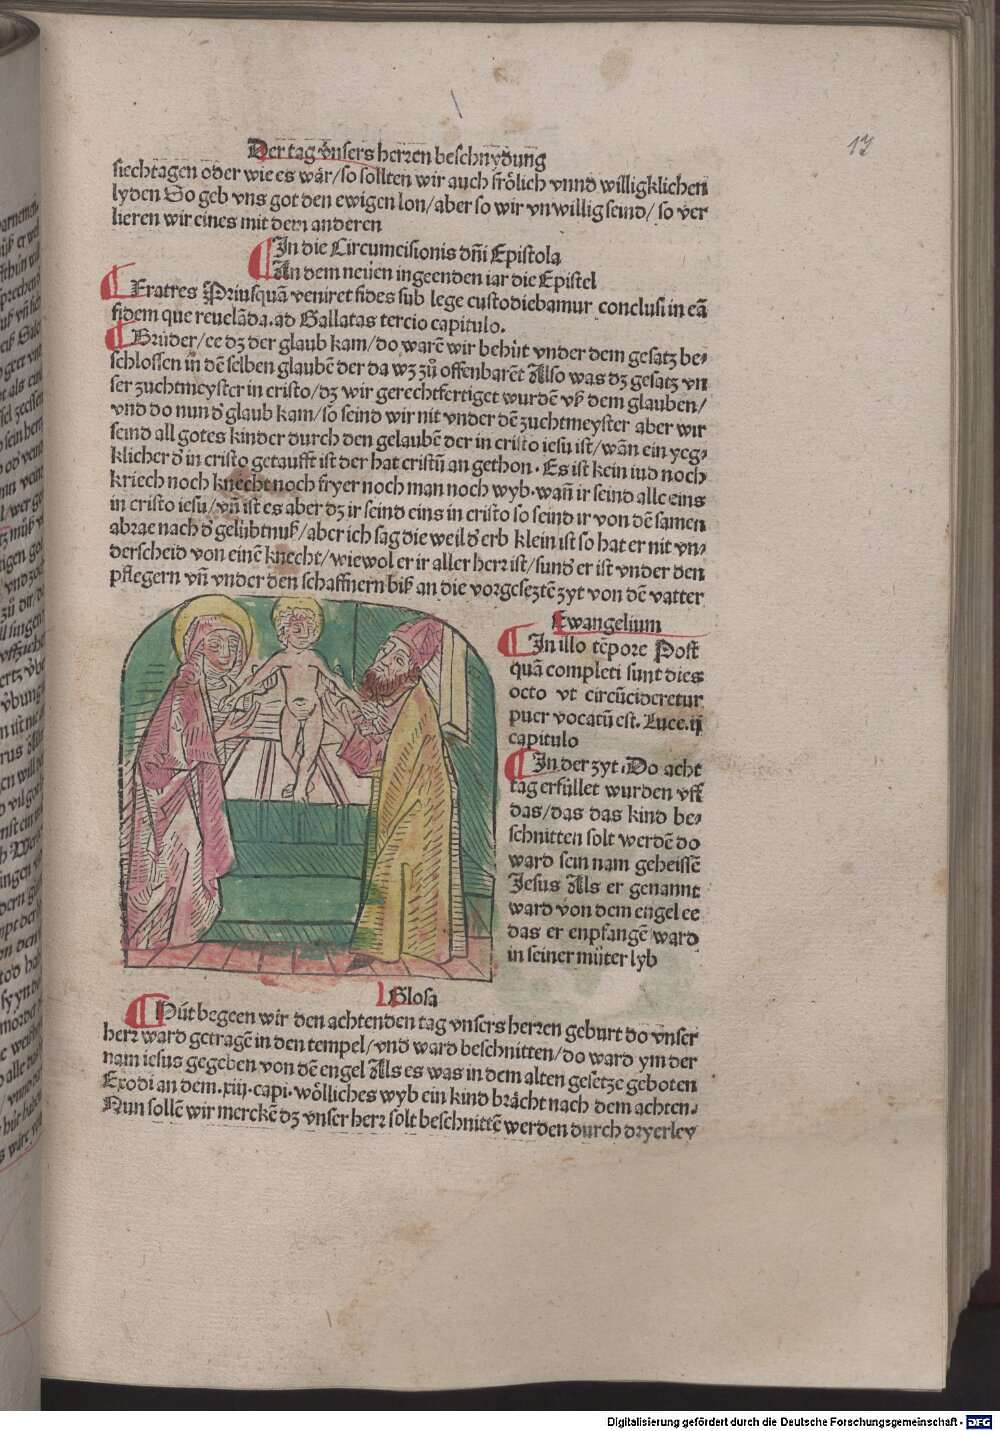 17
Der tag vnsers herren beschnydung
siechtagen oder wie es wår/so sollten wir auch frölich vnnd willigklichen
lyden So geb vns got den ewigen lon/aber so wir vnwillig seind/so ver
lieren wir eines mit dem anderen
In die Circumcisionis dn̄i Epistola
An dem neüen ingeenden iar die Epistel
Fratres Priusquā veniret fides sub lege custodiebamur conclusi in eā
fidem que reuelāda. ad Gallatas tercio capitulo.
Brüder/ee dz der glaub kam/do warē wir behüt vnder dem gesatz be⸗
schlossen in dē selben glaubē der da wz zů offenbarēt Also was dz gesatz vn
ser zuchtmeyster in cristo/dz wir gerechtfertiget wurdē vß dem glauben/
vnd do nun d̄ glaub kam/so seind wir nit vnder dē zuchtmeyster aber wir
seind all gotes kinder durch den gelaubē der in cristo iesu ist/wān ein yeg⸗
klicher d̄ in cristo getaufft ist der hat cristū an gethon. Es ist kein iud noch
kriech noch knecht noch fryer noch man noch wyb. wañ ir seind alle eins
in cristo iesu/vñ ist es aber dz ir seind eins in cristo so seind ir von dē samen
abrae nach d̄ gelübtnuß/aber ich sag die weil d̄ erb klein ist so hat er nit vn⸗
derscheid von einē knecht/wiewol er ir aller herr ist/sund̄ er ist vnder den
pflegern vñ vnder den schaffnern biß an die vorgeseztē zyt von dē vatter
Ewangelium
In illo tēpore Post
quā completi sunt dies
octo vt circūcideretur
puer vocatū est. Luce. ij
capitulo
In der zyt. Do acht
tag erfüllet wurden vff
das/das das kind be⸗
schnitten solt werdē do
ward sein nam geheissē
Jesus Als er genannt
ward von dem engel ee
das er enpfangē ward
in seiner müter lyb
Glosa
Hüt begeen wir den achtenden tag vnsers herren geburt do vnser
herr ward getragē in den tempel/vnd ward beschnitten/do ward ym der
nam iesus gegeben von dē engel Als es was in dem alten gesetze geboten
Exodi an dem .xiij. capi. wölliches wyb ein kind brächt nach dem achten.
Nun sollē wir merckē dz vnser herr solt beschnittē werden durch dryerley
Digitalisierung gefördert durch die Deutsche Forschungsgemeinschaft - DFG